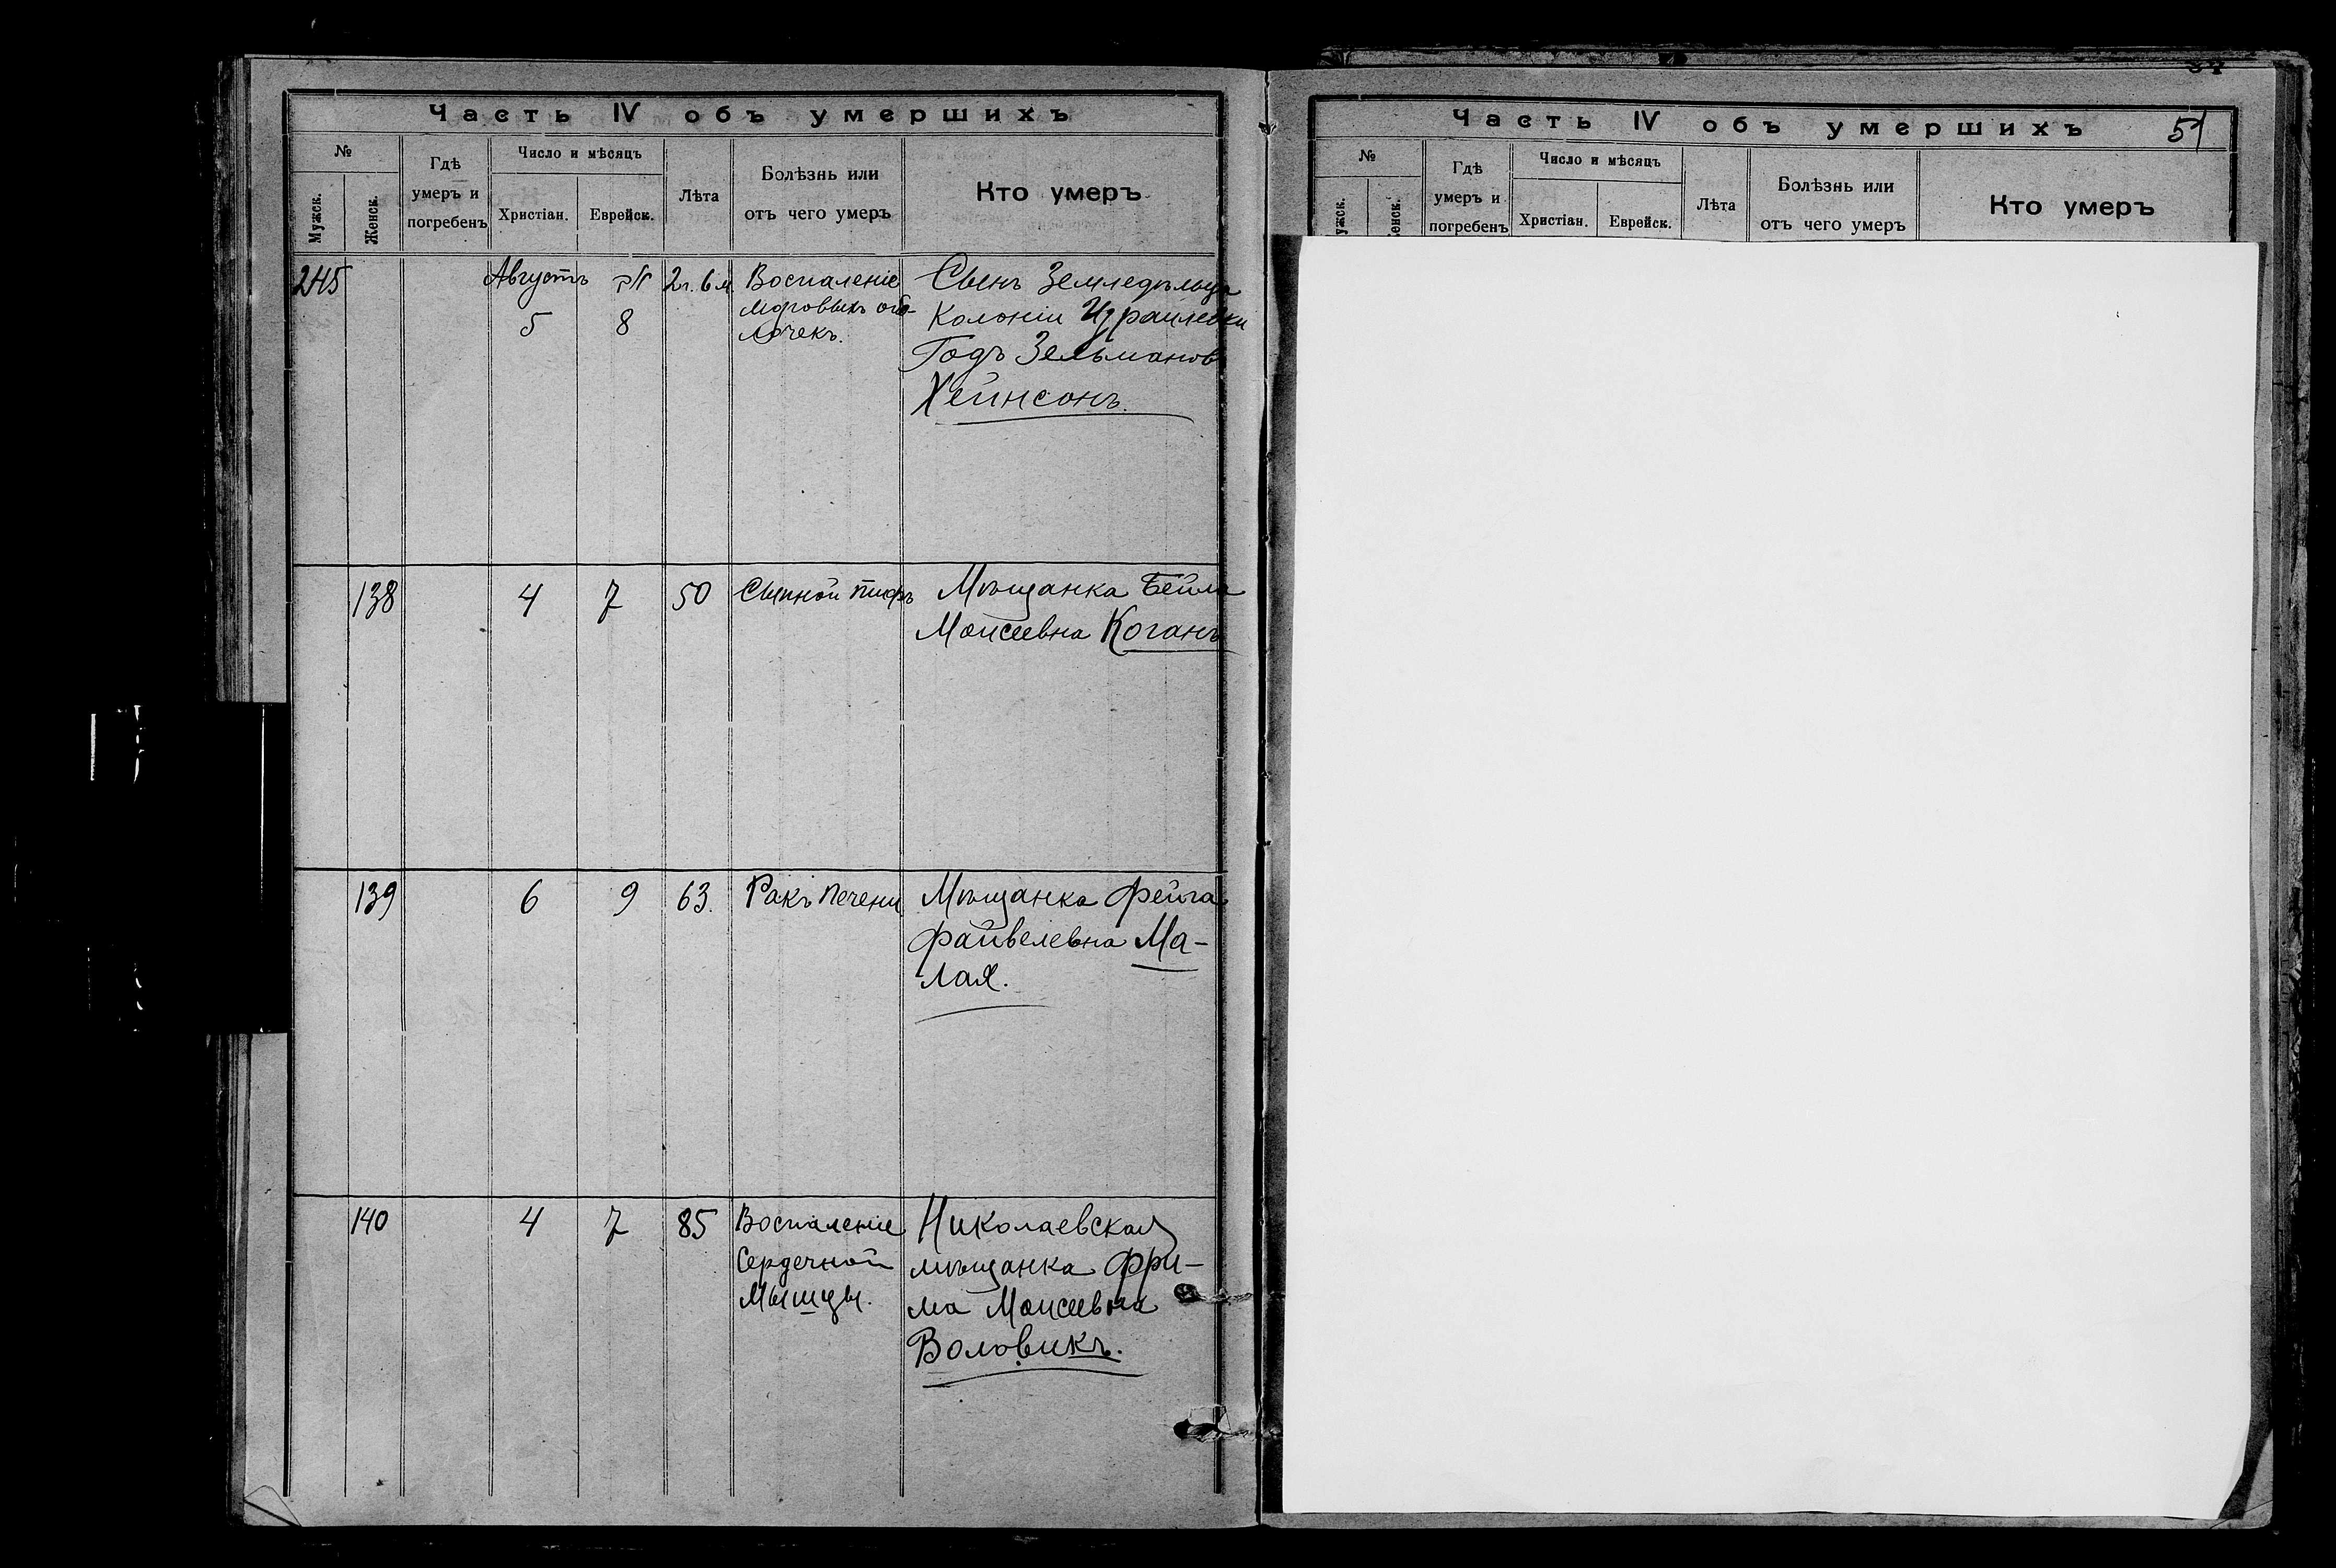 Часть IV объ умершихъ
№
Мужск.
Женск.
Гдѣ
умеръ и
погребенъ
Число и мѣсяцъ
Христіан.
Еврейск.
Лѣта
Болѣзнь или
отъ чего умеръ
Кто умеръ
245
Августъ
5
אב
8
2г. 6м.
Воспаленіе
мозговыхъ обо-
лочекъ.
Сынъ Земледѣльца
Колоніи Израилевки
Годъ Зельмановъ
Хейнсонъ.
138
4
7
50
Сыпной тифъ
Мѣщанка Бейла
Моисеевна Коганъ
139
6
9
63.
Ракъ печени
Мѣщанка Фейга
Файвелевна Ма-
лая.
140
4
7
85
Воспаленіе
Сердечной
Мышцы.
Николаевская
мѣщанка Фри-
ма Моисеевна
Воловикъ.
Часть IV объ умершихъ
51
№
ужск.
енск.
Гдѣ
умеръ и
погребенъ
Число и мѣсяцъ
Христіан.
Еврейск.
Лѣта
Болѣзнь или
отъ чего умеръ
Кто умеръ